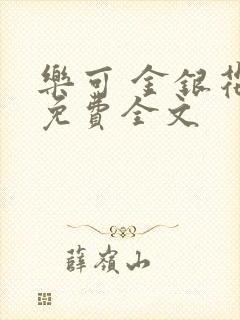 樂可 金銀花
免費全文
薛嶺山